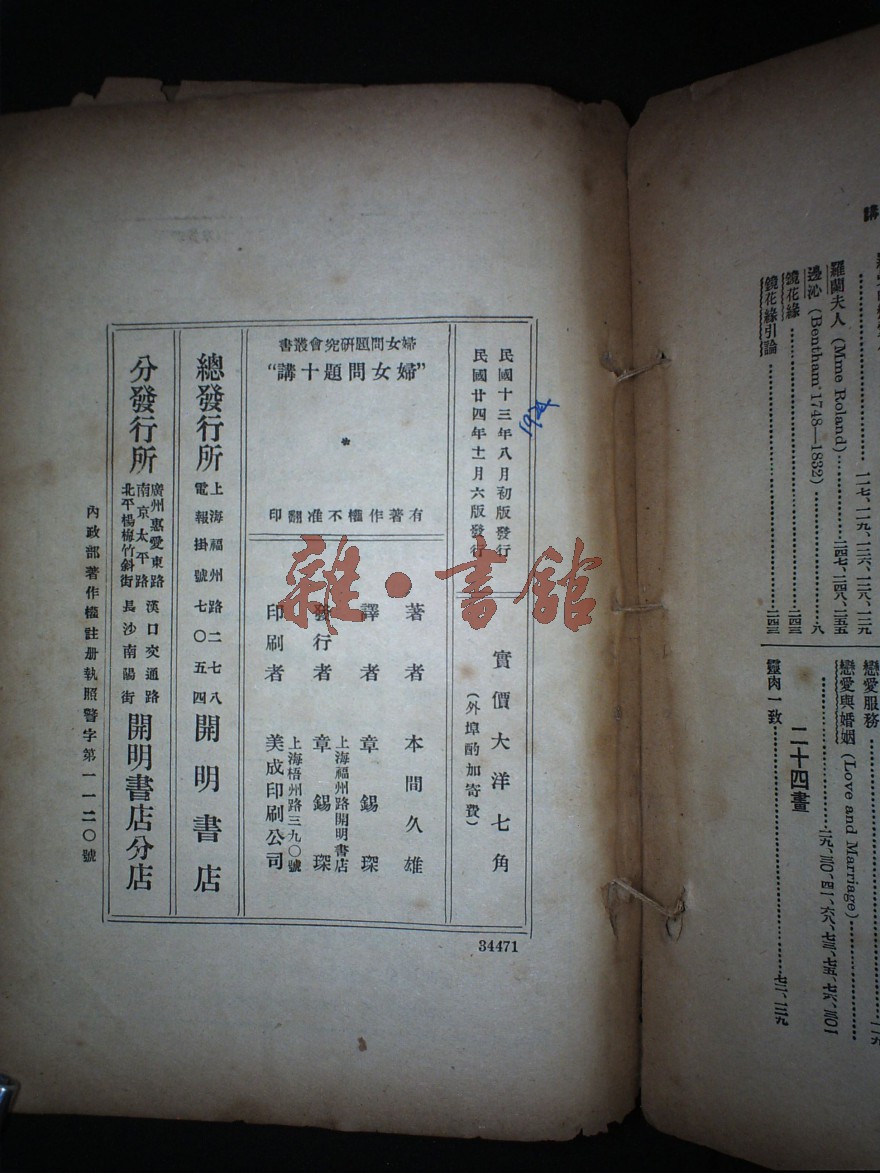 羅蘭夫人 (Mme Roland)……二四七、二四八、二五五
邊沁 (Bentham 1748—1832)……八
鏡花緣……二四三
鏡花緣引論……二四三
戀愛服務
戀愛與婚姻 (Love and Marriage)
……二九、三〇、四一、六八、七三、七五、七六、三〇一
二十四畫
靈肉一致……七二、一二九
一一七、一一九、一二六、一二八、一二九
民國十三年八月初版發行
民國廿四年十一月六版發行
1924
實價大洋七角
(外埠酌加寄費)
婦女問題研究會叢書
“婦女問題十講”
有著作權不准翻印
著者 本間久雄
譯者 章錫琛
上海福州路開明書店
發行者 章錫琛
上海梧州路三九〇號
印刷者 美成印刷公司
總發行所
上海福州路二七八
電報掛號七〇五四
開明書店
分發行所
廣州惠愛東路 漢口交通路
南京太平路
北平楊梅竹斜街 長沙南陽街
開明書店分店
內政部著作權註册執照警字第一一二〇號
34471
雜·書館